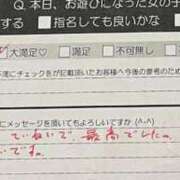 Q. 本日、お遊びになった女の子
□ 指名しても良いかな
大満足♡ □ 満足 □ 不可無し □
不満にチェックを記載頂いたお客様へ今後の参考のため
にメッセージを頂いてもよろしいですか (^-^)
ていねいで、最高でした。
です。